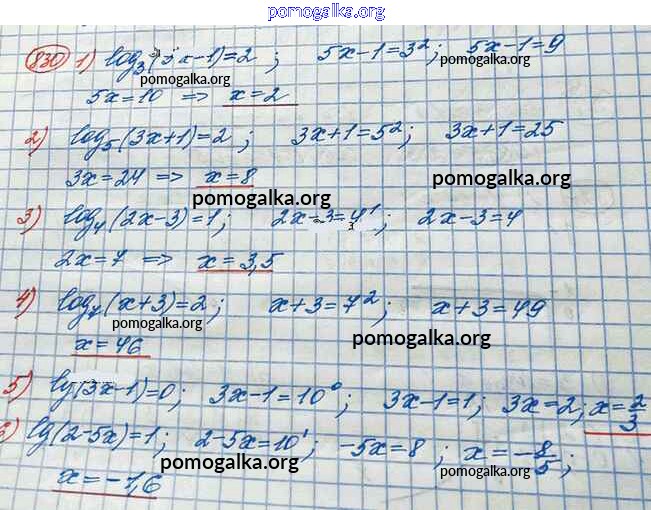 pomogalka.org
830 1) log₃(5x-1)=2; 5x-1=3²; 5x-1=9
pomogalka.org pomogalka.org
5x=10 => x=2
2) log₅(3x+1)=2; 3x+1=5²; 3x+1=25
3x=24 => x=8
pomogalka.org pomogalka.org
3) log₄(2x-3)=1; 2x-3=4¹; 2x-3=4
2x=7 => x=3,5
4) log₇(x+3)=2; x+3=7²; x+3=49
pomogalka.org pomogalka.org
x=46
5) lg(3x-1)=0; 3x-1=10⁰; 3x-1=1; 3x=2; x=2/3
6) lg(2-5x)=1; 2-5x=10¹; -5x=8; x=-8/5;
pomogalka.org pomogalka.org
x=-1,6